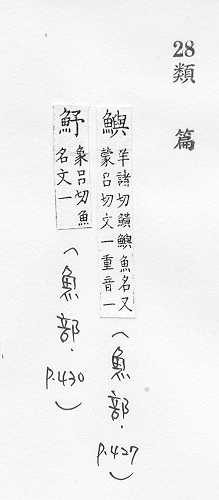 28
類篇
鱮
羊諸切鱝鱮魚名又
象呂切文一重音一
(魚部.
p.427)
魣
象呂切魚
名文一
(魚部.
p.430)